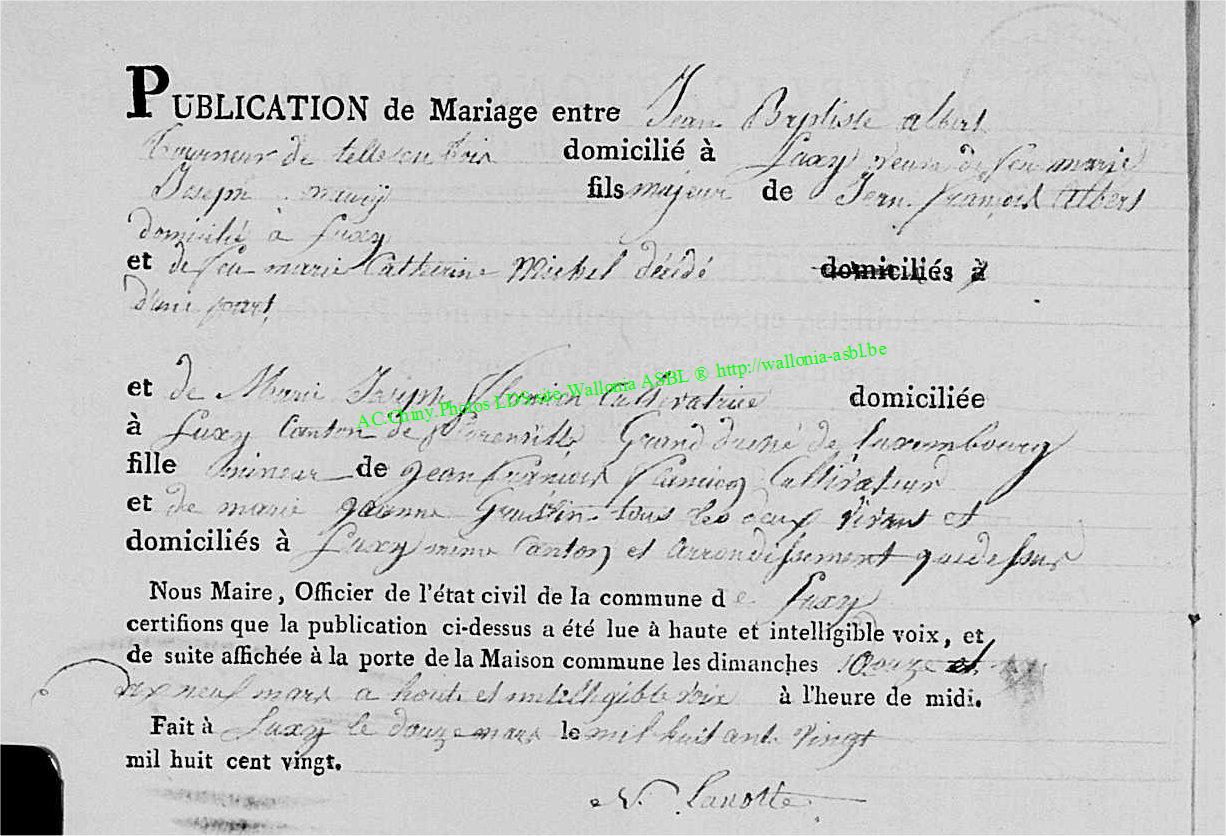 PUBLICATION de Mariage entre Jean Baptiste Albert
tourneur de telle en bois domicilié à Suxy veuve de feu marie
Joseph fils majeur de Jean françois Albert
domicilié à Suxy
et de feu marie Catherine Michel décidé domiciliés à
d'une part,
et de Marie Joseph Cultivatrice domiciliée
à Suxy Canton de florenville Grand duché de Luxembourg
fille mineur de jean Cultivateur
et de marie jeanne tous les deux vivant et
domiciliés à Suxy même Canton et arrondissement que dessus
Nous Maire, Officier de l'état civil de la commune de Suxy
certifions que la publication ci-dessus a été lue à haute et intelligible voix, et
de suite affichée à la porte de la Maison commune les dimanches douze et
dix neuf mars a haute et intelligible voix à l'heure de midi.
Fait à Suxy le douze mars le mil huit cent vingt
mil huit cent vingt.
AC.Chiny.Photos LD's site Wallonia ASBL ® http://wallonia-asbl.be